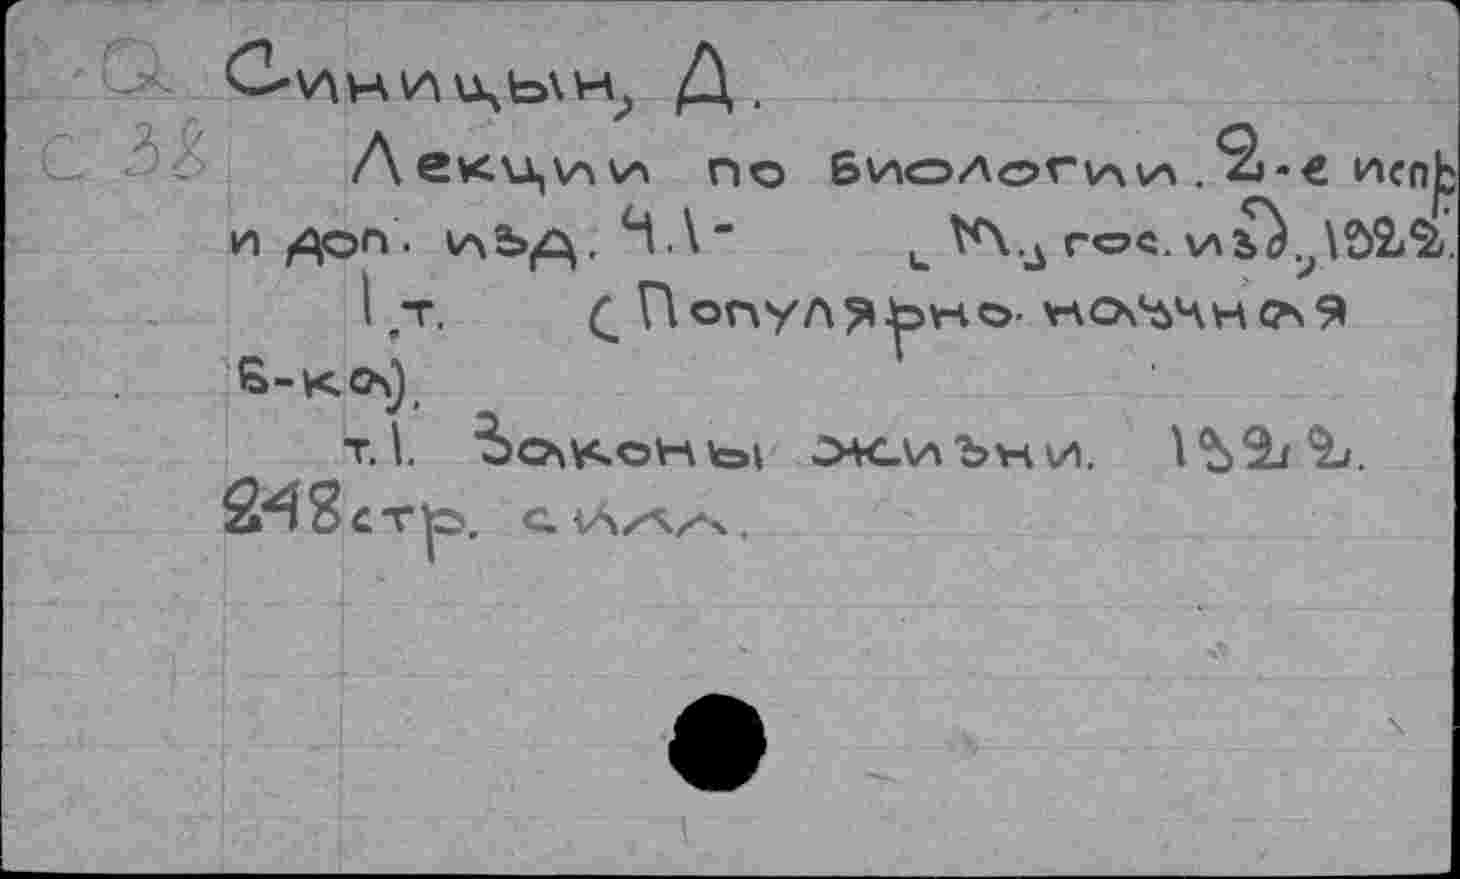 С Синицын, Д.
38 Лекции по биологии. 2-е испр
и доп. изд. Ч.1- М., гос. изд., 1922.
1 т. (Популярно-научная
б-ка).
т.1. Законы жизни. 1922.
248 стр. с илл.